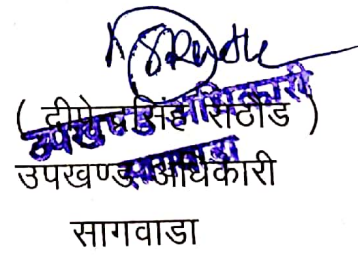 ( दीपेन्द्रसिंह राठौड )
उपखण्ड अधिकारी
उपखण्ड अधिकारी
सागवाडा
सागवाडा